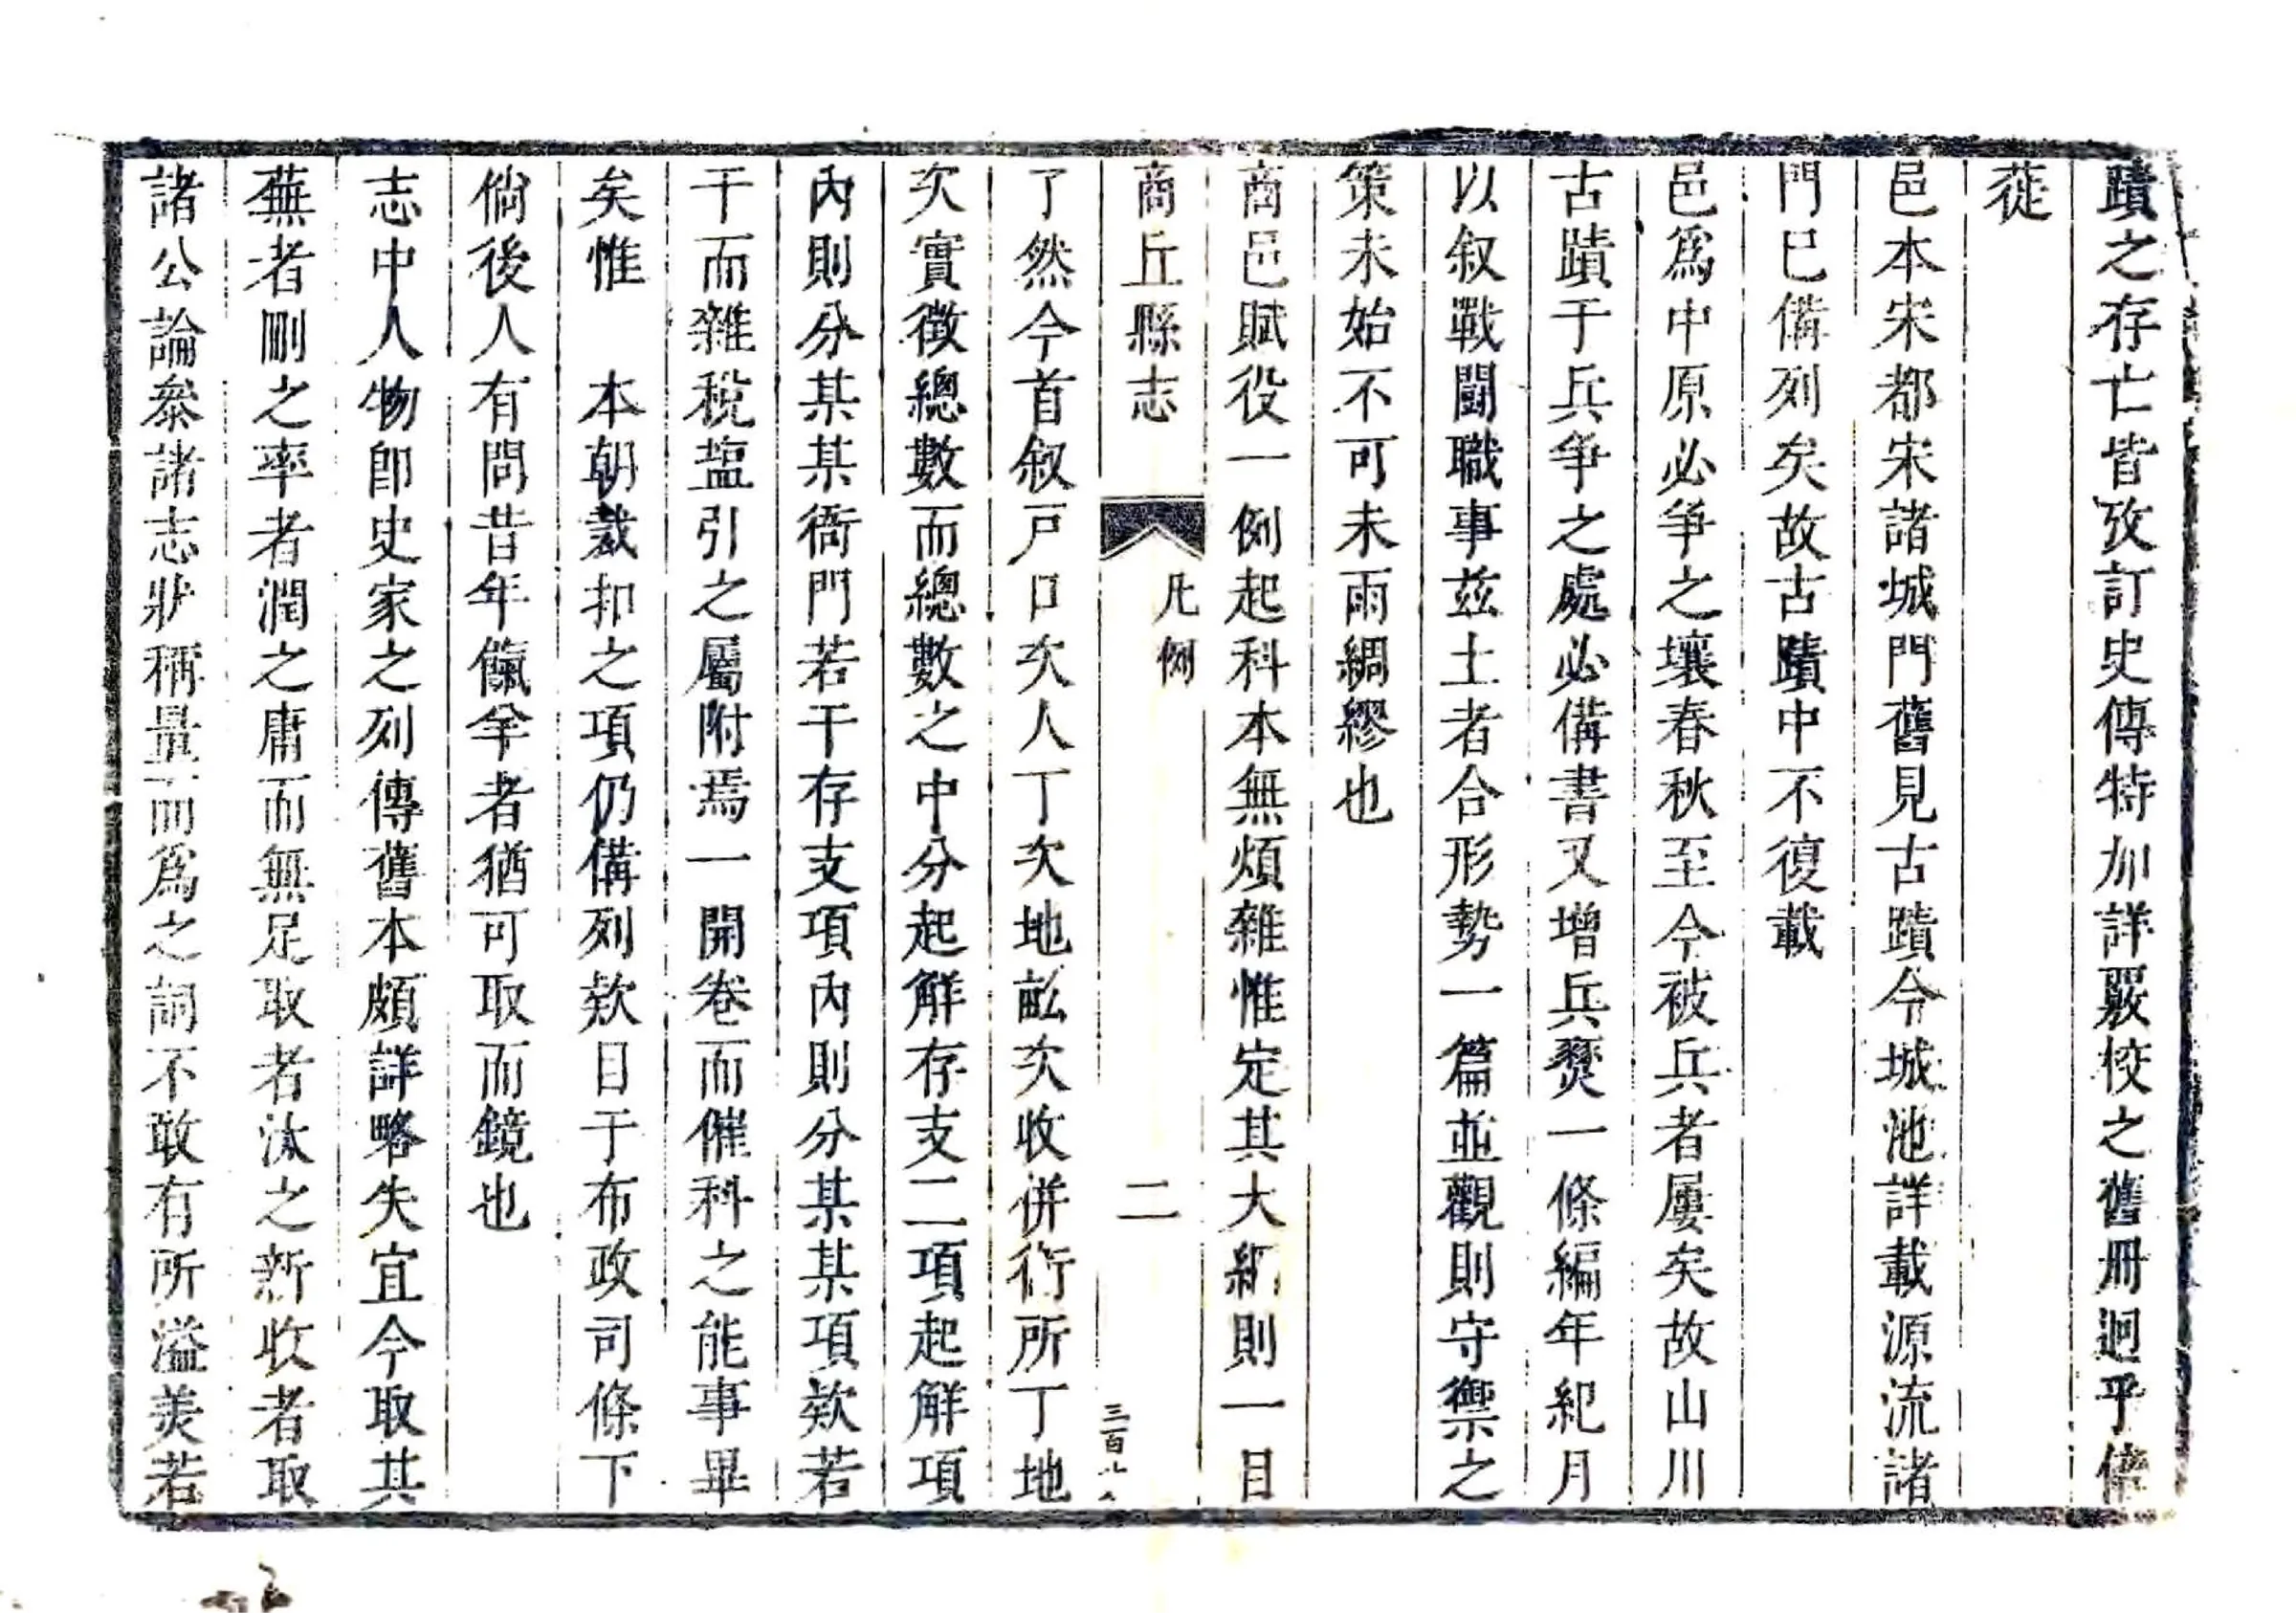 蹟之存亡皆攷訂史傳特加詳覈校之舊册迥乎倍
蓰
邑本宋都宋諸城門舊見古蹟今城池詳載源流諸
門巳備列矣故古蹟中不復載
邑爲中原必爭之壤春秋至今被兵者屢矣故山川
古蹟于兵爭之處必備書又增兵燹一條編年紀月
以叙戰鬪職事兹土者合形勢一篇並觀則守禦之
策未始不可未雨綢繆也
商邑賦役一例起科本無煩雜惟定其大綱則一目
商丘縣志
凡例
二
三百八
了然今首叙戸口次人丁次地畝次收併衛所丁地
次實徵總數而總數之中分起解存支二項起解項
內則分某某衙門若干存支項內則分某某項欵若
干而雜稅塩引之屬附焉一開卷而催科之能事畢
矣惟 本朝裁扣之項仍備列欵目于布政司條下
倘後人有問昔年餼羊者猶可取而鏡也
志中人物卽史家之列傳舊本頗詳略失宜今取其
蕪者刪之率者潤之庸而無足取者汰之新收者取
諸公論叅諸志狀稱量而爲之詞不敢有所溢美若